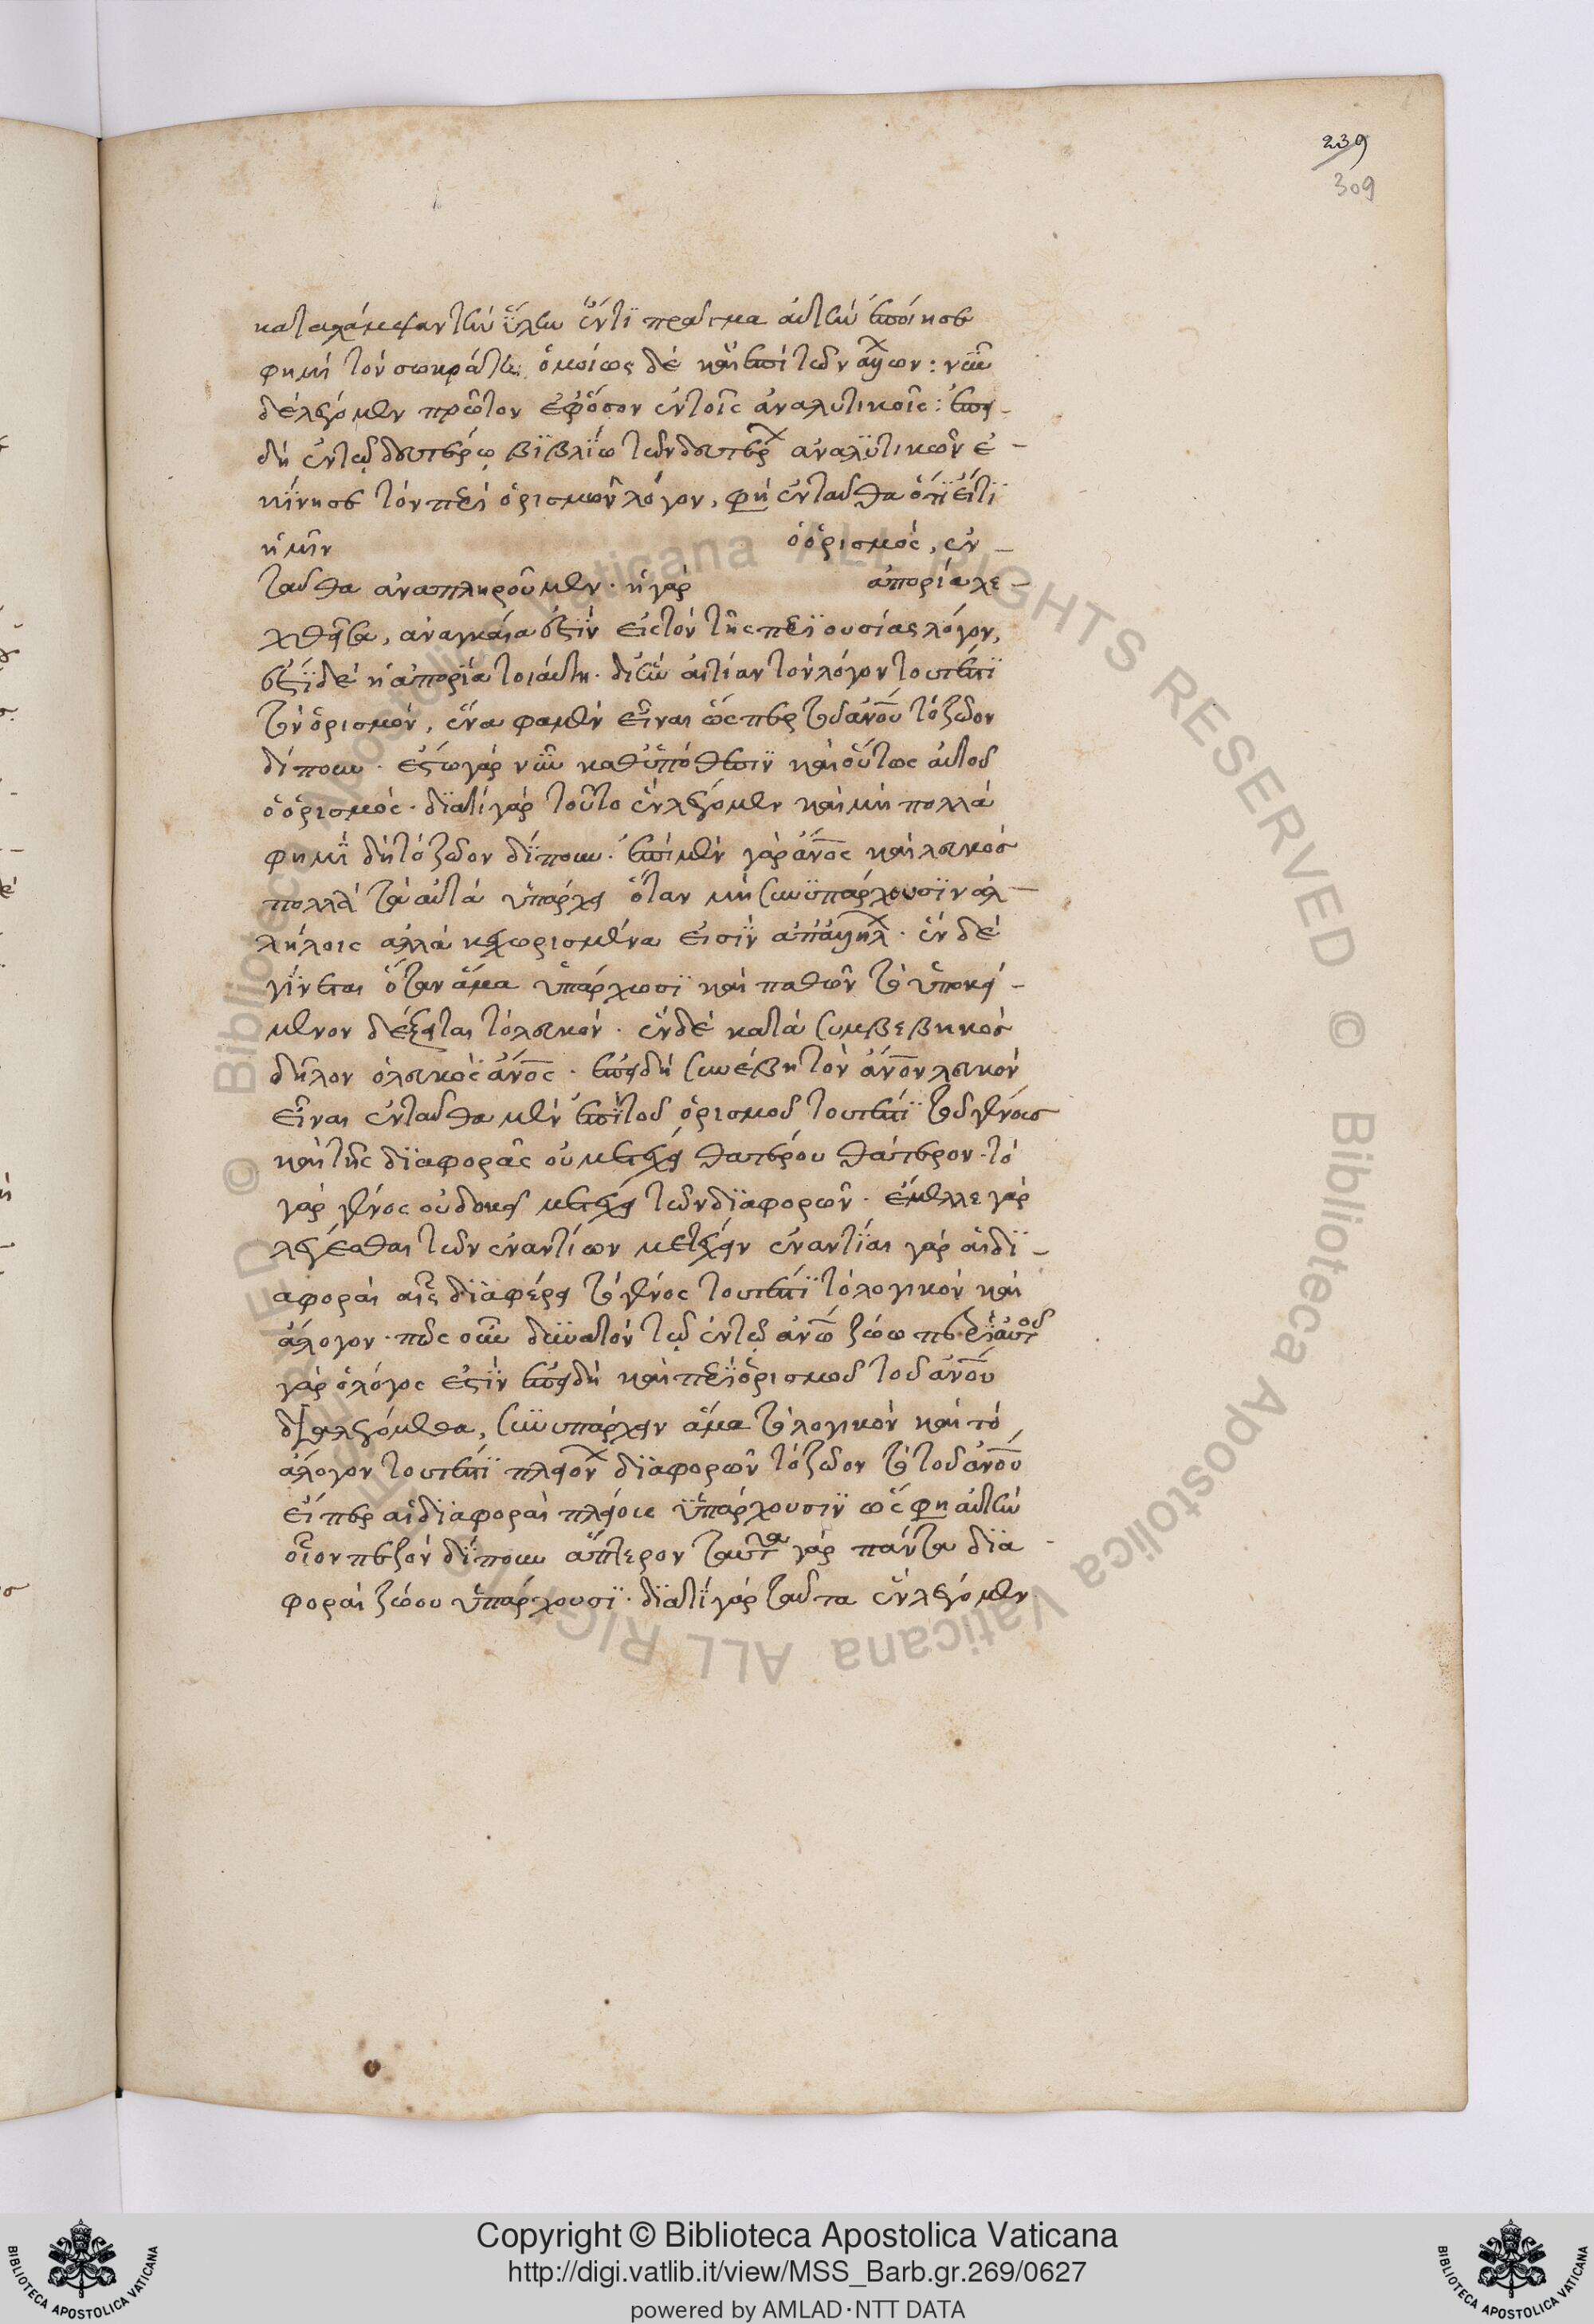 239
309
καταλάμψαν τὴν ὕλην ἕν τι πρᾶγμα αὐτὴν ἐποίησε
φημὶ τὸν σωκράτην ὁμοίως δὲ καὶ ἐπὶ τῶν ἄλλων: νῦν
δὲ λέγομεν πρῶτον ἐφόσον ἐν τοῖς ἀναλυτικοῖς: ἐπει-
δὴ ἐν τῷ δευτέρῳ βιβλίω τῶν δευτέρων αναλυτικῶν ἐ-
κίνησε τὸν περὶ ὁρισμῶν λόγον, φησὶ ἐνταῦθα ὅτι
ἡμῖν ὁ ὁρισμὸς, ἐν-
ταῦθα ἀναπληροῦμεν. ἡ γὰρ ἀπορία λε-
χθεῖσα, ἀναγκαία ἐστὶν εἰς τὸν τῆς περὶ ουσίας λόγον,
ἐστὶ δὲ ἡ ἀπορία τοιαύτη. δι ἣν αἰτίαν τὸν λόγον τουτέστι
τὸν ὁρισμὸν, ἕνα φαμὲν εἶναι ὥσπερ τοῦ ἀνου τὸ ζῶον
δίπουν. ἔστω γὰρ νῦν καθ ὑπόθεσιν καὶ οὕτως αὐτοῦ
ὁ ὁρισμὸς. διατί γὰρ τοῦτο ἓν λέγομεν καὶ μὴ πολλὰ
φημὶ δὴ τὸ ζῶον δίπουν. ἐπὶ μὲν γὰρ ἄνος καὶ λευκὸς
πολλὰ τὰ αὐτὰ ὑπάρχει ὅταν μὴ συνυπάρχουσιν ἀλ-
λήλοις αλλὰ κεχωρισμένα εἰσὶν ἀπ ἀλλήλ. ἓν δὲ
γίνεται ὅταν ἅμα ὑπάρχωσι καὶ παθὼν τὸ ὑποκεί-
μενον δέξηται τὸ λευκόν. ἓν δὲ κατὰ συμβεβηκὸς
δῆλον ὁ λευκὸς ἄνος. ἐπειδὴ συνέβη τὸν ἄνον λευκὸν
εἶναι ἐνταῦθα μὲν ἐπὶ τοῦ ὁρισμοῦ τουτέστι τοῦ γένους
καὶ τῆς διαφορᾶς οὐ μετέχει θατέρου θάτερον. τὸ
γὰρ γένος οὐ δοκεῖ μετέχει τῶν διαφορῶν. ἔμελλε γὰρ
λέγεσθαι τῶν ἐναντίων μετέχειν ἐναντίαι γὰρ αἱ δι-
αφοραὶ αἷς διαφέρει τὸ γένος τουτέστι τὸ λογικὸν καὶ
ἄλογον. πῶς οὖν δυνατὸν τῷ ἐν τῷ ἀνω ζώω περὶ αὐτοῦ
γὰρ ὁ λόγος ἐστὶν ἐπειδὴ καὶ περὶ ὁρισμοῦ τοῦ ἀνου
διαλεγόμεθα, συνυπάρχειν ἅμα τὸ λογικὸν καὶ τὸ
ἄλογον τουτέστι πλειόνων διαφορῶν τὸ ζῶον τὸ τοῦ ἀνου
εἴπερ αἱ διαφοραὶ πλείους ὑπάρχουσιν ὥς φησὶ αὐτὴν
οἷον πεζὸν δίπουν ἄπτερον ταῦτα γὰρ πάντα δια
φοραὶ ζώου ὑπάρχουσι. διατί γὰρ ταῦτα ἓν λέγομεν
Copyright © Biblioteca Apostolica Vaticana
http://digi.vatlib.it/view/MSS_Barb.gr.269/0627
powered by AMLAD·NTT DATA